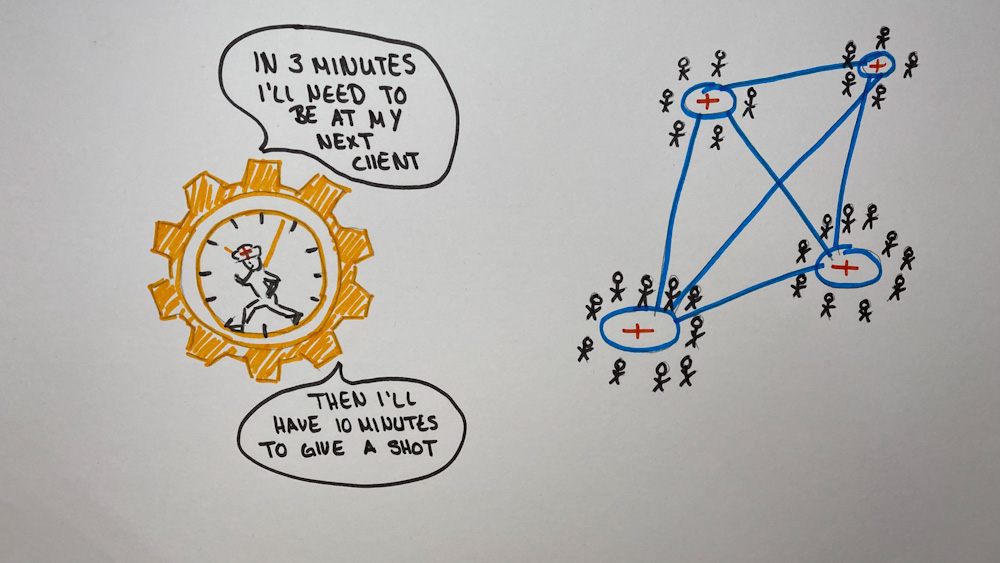 IN 3 MINUTES
I'LL NEED TO
BE AT MY
NEXT
CLIENT
THEN I'LL
HAVE 10 MINUTES
TO GIVE A SHOT